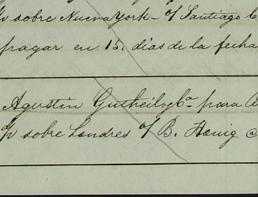 sobre Nueva York - o/ Santiago
pagar en 15. dias de la fecha
Agustin Gutheil y Ca. para
sobre Londres o/ B. Henig